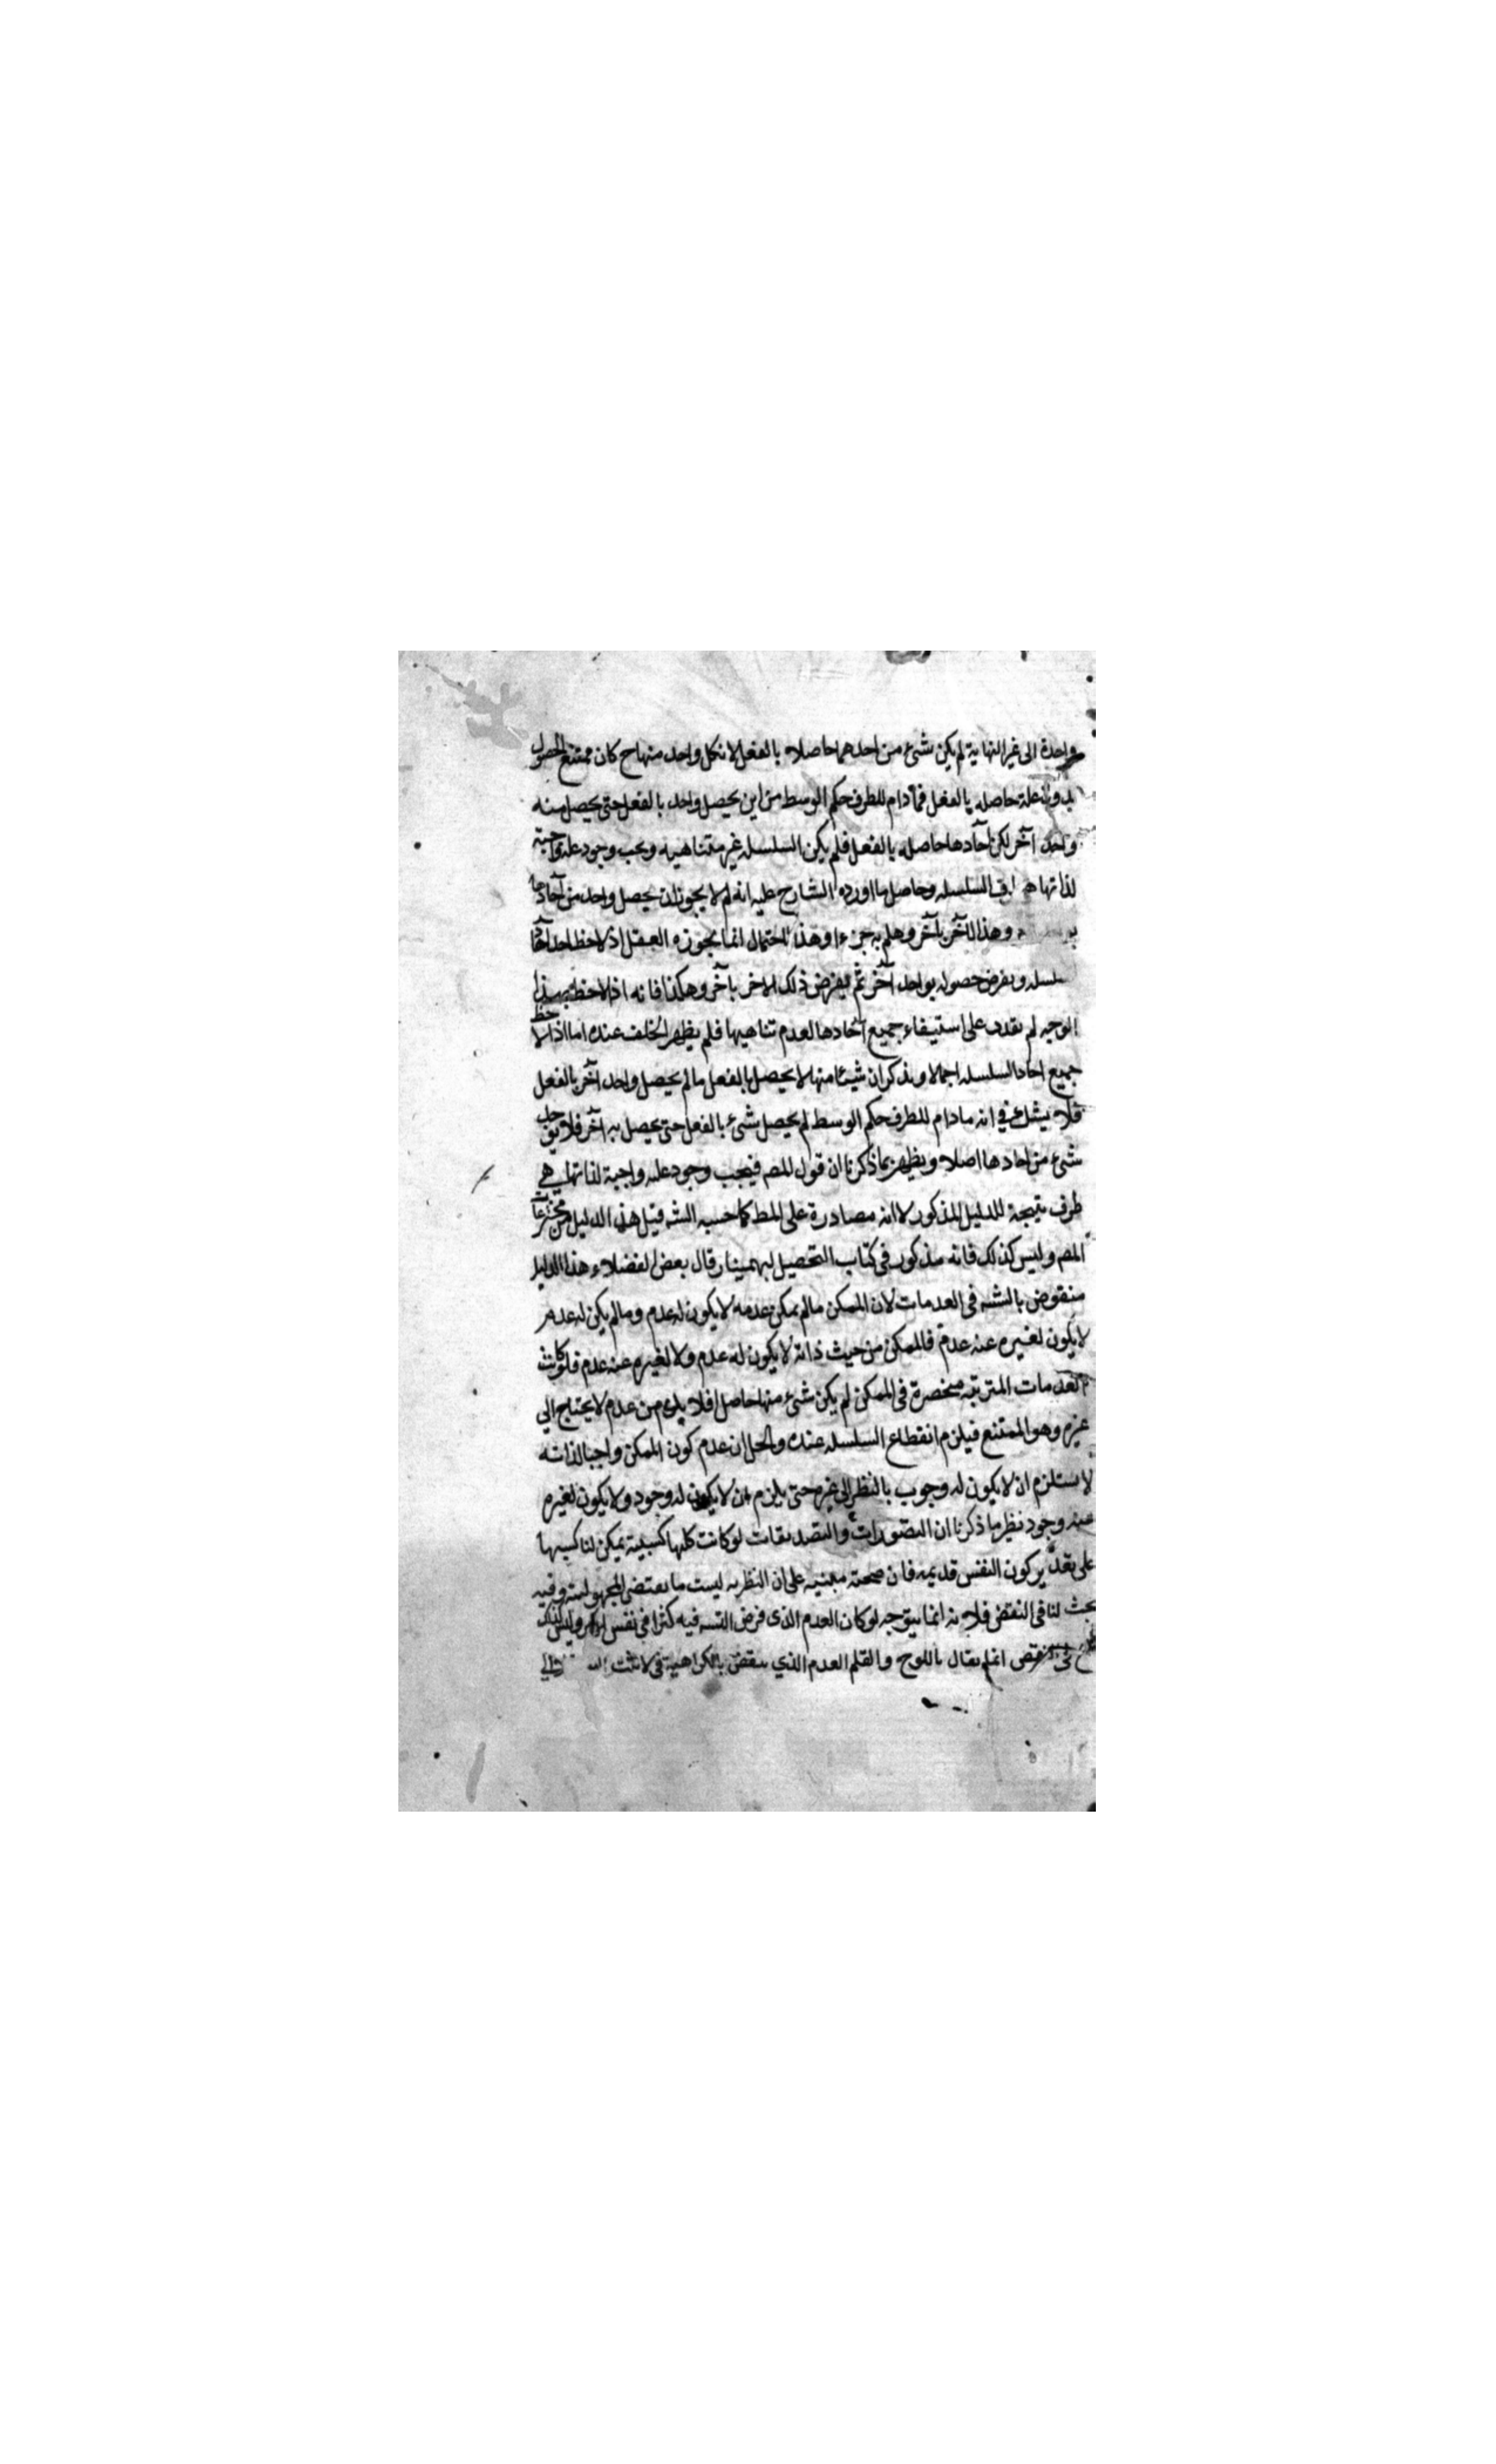 واحدة الى غير النهاية لم يكن شئ من احدهما حاصلا بالفعل لان كل واحد منها ح كان ممتنع الحصول
بدون علة حاصله بالفعل فمادام للطرف حكم الوسط من اين يحصل واحد بالفعل حتى يحصل منه
واحد آخر لكن آحادها حاصله بالفعل فلم يكن السلسله غير متناهيه ويجب وجود علة واجبة
لذاتها السلسله وحاصل ما اورده الشارح عليه انه لم لا يجوز ان يحصل واحد من آحادها
وهذا الآخر بآخر وهلم جرا وهذا احتمال انما يجوزه العقل اذ لاحظ احد آحاد
سلسله ويفرض حصوله بواحد آخر ثم يفرض ذلك الاخر بآخر وهكذا فانه اذا لاحظ بهذا
الوجه لم يقدر على استيفاء جميع آحادها لعدم تناهيها فلم يظهر الخلف عنده اما اذا لاحظ
جميع احاد السلسله اجمالا ويذكر ان شيئا منها لا يحصل بالفعل ما لم يحصل واحد آخر بالفعل
فلا يشك في انه مادام للطرف حكم الوسط لم يحصل شئ بالفعل حتى يحصل به آخر فلا
شئ من احادها اصلا ويظهر بما ذكرنا ان قول المصـ فيجب وجود علة واجبة لذاتها هي
طرف نتيجة للدليل المذكور لا انه مصادرة على المط كما حسبه الشـ قيل هذا الدليل من مخترعات
المصـ وليس كذلك فانه مذكور في كتاب التحصيل لبهمنيار قال بعض الفضلاء هذا الدليل
منقوض بالتسـ في العدمات لان الممكن ما لم يمكن عدمه لا يكون له عدم وما لم يكن له عدم
لا يكون لغيره عنه عدم فالممكن من حيث ذاته لا يكون له عدم ولا لغيره عنه عدم فلو كانت
العدمات المترتبه منحصرة في الممكن لم يكن شئ منها حاصلا فلا بد من عدم لا يحتاج الى
غيره وهو الممتنع فيلزم انقطاع السلسله عنده والحل ان عدم كون الممكن واجبا لذاته
لا يستلزم ان لا يكون له وجوب بالنظر الى غيره حتى يلزم ان لا يكون له وجود ولا يكون لغيره
عنه وجود نظير ما ذكرنا ان التصورات والتصديقات لو كانت كلها كسبية يمكن لنا كسبها
على تقدير كون النفس قديمه فان صحته مبنيه على ان النظريه ليست ما يقتضى المجهولية وفيه
بحث لنا في النقض فلانه انما يتوجه لو كان العدم الذى فرض التسـ فيه في نفس الامر وليس
انما يقال باللوح والقلم العدم الذي ينقض